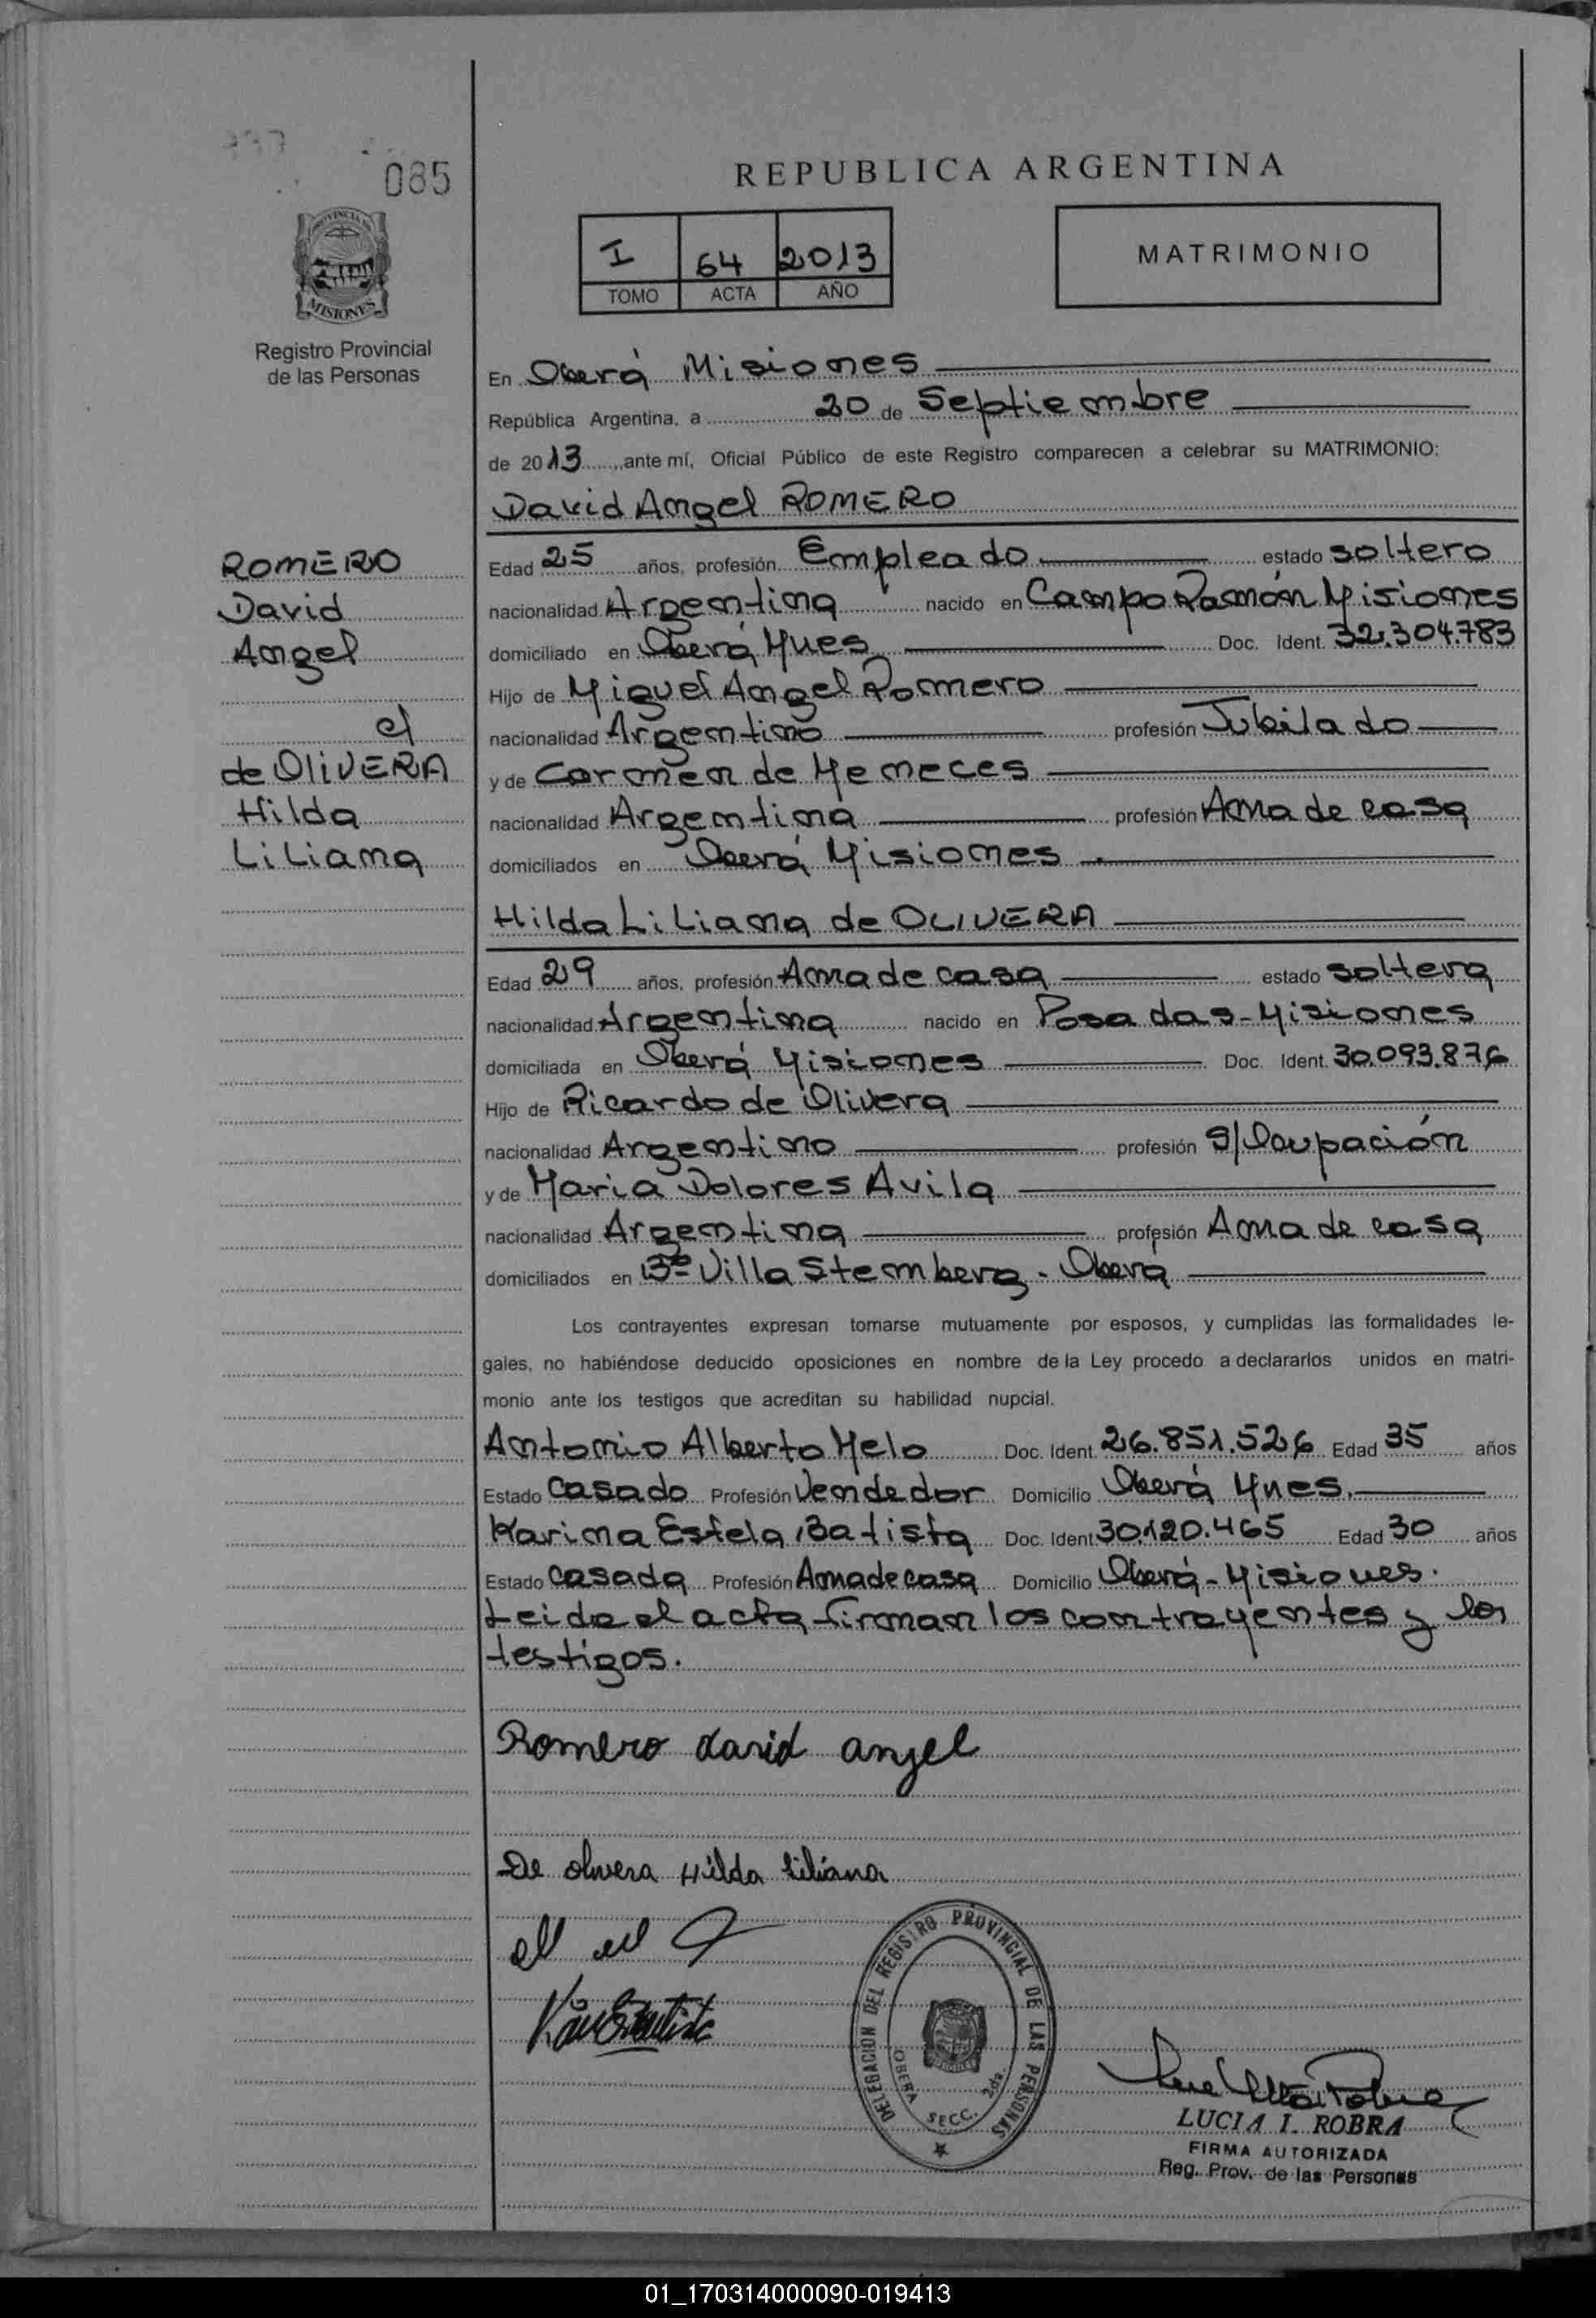 085
PROVINCIA DE
MISIONES
Registro Provincial
de las Personas
REPUBLICA ARGENTINA
I 64 2013
TOMO ACTA AÑO
MATRIMONIO
En Oberá Misiones
República Argentina, a 20 de Septiembre
de 2013 ante mí, Oficial Público de este Registro comparecen a celebrar su MATRIMONIO:
David Angel ROMERO
ROMERO
David
Angel
c/
de OLIVERA
Hilda
Liliana
Edad 25 años, profesión Empleado estado soltero
nacionalidad Argentina nacido en Campo Ramón Misiones
domiciliado en Oberá Mnes Doc. Ident. 32.304.783
Hijo de Miguel Angel Romero
nacionalidad Argentino profesión Jubilado
y de Carmen de Meneces
nacionalidad Argentina profesión Ama de casa
domiciliados en Oberá Misiones
Hilda Liliana de OLIVERA
Edad 29 años, profesión Ama de casa estado soltera
nacionalidad Argentina nacido en Posadas - Misiones
domiciliada en Oberá Misiones Doc. Ident. 30.093.876
Hijo de Ricardo de Olivera
nacionalidad Argentino profesión S/Ocupación
y de Maria Dolores Avila
nacionalidad Argentina profesión Ama de casa
domiciliados en Bº Villa Stemberg - Oberá
Los contrayentes expresan tomarse mutuamente por esposos, y cumplidas las formalidades le-
gales, no habiéndose deducido oposiciones en nombre de la Ley procedo a declararlos unidos en matri-
monio ante los testigos que acreditan su habilidad nupcial.
Antonio Alberto Melo Doc. Ident. 26.851.526 Edad 35 años
Estado Casado Profesión Vendedor Domicilio Oberá Mnes.
Karina Estela Batista Doc. Ident. 30.120.465 Edad 30 años
Estado Casada Profesión Ama de casa Domicilio Oberá - Misiones.
Leida el acta firman los contrayentes y los
testigos.
Romero david angel
De olivera Hilda liliana
DELEGACION DEL REGISTRO PROVINCIAL DE LAS PERSONAS
OBERA SECC. 2da.
LUCIA I. ROBRA
FIRMA AUTORIZADA
Reg. Prov. de las Personas
01_170314000090-019413